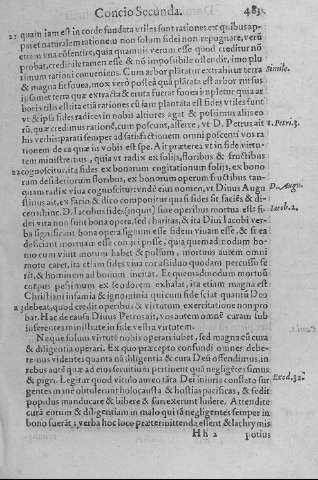 Concio Secunda. 483
quam iam est in corde fundata vtiles sunt rationes ex quibus
et naturalem rationem non solum fidei non repugnare, verū
etiam vna consentire, quia quamuis verum esse quod creditur nō
probat, credibile tamen esse & nō impossibile ostendit, imo plu
rimum rationi conueniens. Cum arbor plātatur extrahitur terra Simile.
& magna fit fouea, mox verò posteà quā plātata est arbor rursus
in sumet terra quæ extracta & eruta fuerat fouea impletur quia ar
bori vtilis est ita etiā rationes cū iam plantata est fides vtiles sunt
vt & ipsa fides radices in nobis altiores agat & possimus alijs eo
rū, quæ credimus rationē, cum poscunt, afferre, vt D. Petrus ait 1. Petri. 3.
his verbis parati semper ad satisfactionem omni poscenti vos ra
tionem de ea quæ in vobis est spe. Ait præterea vt in fide virtu-
tem ministremus, quia vt radix ex folijs, floribus & fructibus
22 cognoscitur, ita fides ex bonarum cogitationum folijs, ex bono
rum desideriorum floribus, ex bonorum operum fructibus tan-
quam radix viua cognoscitur: vndè eius nomen, vt Diuus Augu D. Augu.
stinus ait, ex facio, & dico componitur quasi fides sit facies, & di-
cens bene. D. Iacobus fidē (inquit) sine operibus mortua est: fi- Iacob. 2.
dei vita non sunt bona opera, sed charitas, & ita Diui Iacobi ver-
ba significant bona opera signum esse fidem viuam esse, & si ea
desciant mortuam esse conijci posse, quia quemadmodum ho-
mo cum viuit motum habet & pulsum, mortuus autem omni
motu caret, ita etiam fides viua cor assiduo quodam percussu fe
rit, & hominem ad bonum incitat. Et quemadmodum mortuū
corpus pessimum ex se odorem exhalat, ita etiam magna est
Christiani infamia & ignominia quicum fide sciat quantū Deo
23 debeat, quod credit operibus & virtutum exercitatione non pro
bat. Hac de causa Diuus Petrus ait, vos autem omnē curam sub
inferentes ministrate in fide vestra virtutem.
Neque solum virtutē nobis operari iubet, sed magna cū cura
& diligentia operari. Ex quo præcepto confundi omnes debe-
mus videntes quanta nā diligentia & cura Deū offendimus, in
rebus autē quæ ad eius seruitium pertinent quā negligētes simus
& pigri. Legitur quod vitulo aureo tāta Dei iniuria conflato sur Exod. 32.
gentes mane obtulerunt holocausta & hostias pacificas, & sedit
populus manducare & bibere & surrexerunt ludere. Attendite
cura eorum & diligentiam in malo qui tā negligentes semper in
bono fuerāt; verba hoc loco prætermittenda essent & lachrymis
Hh 2 potius